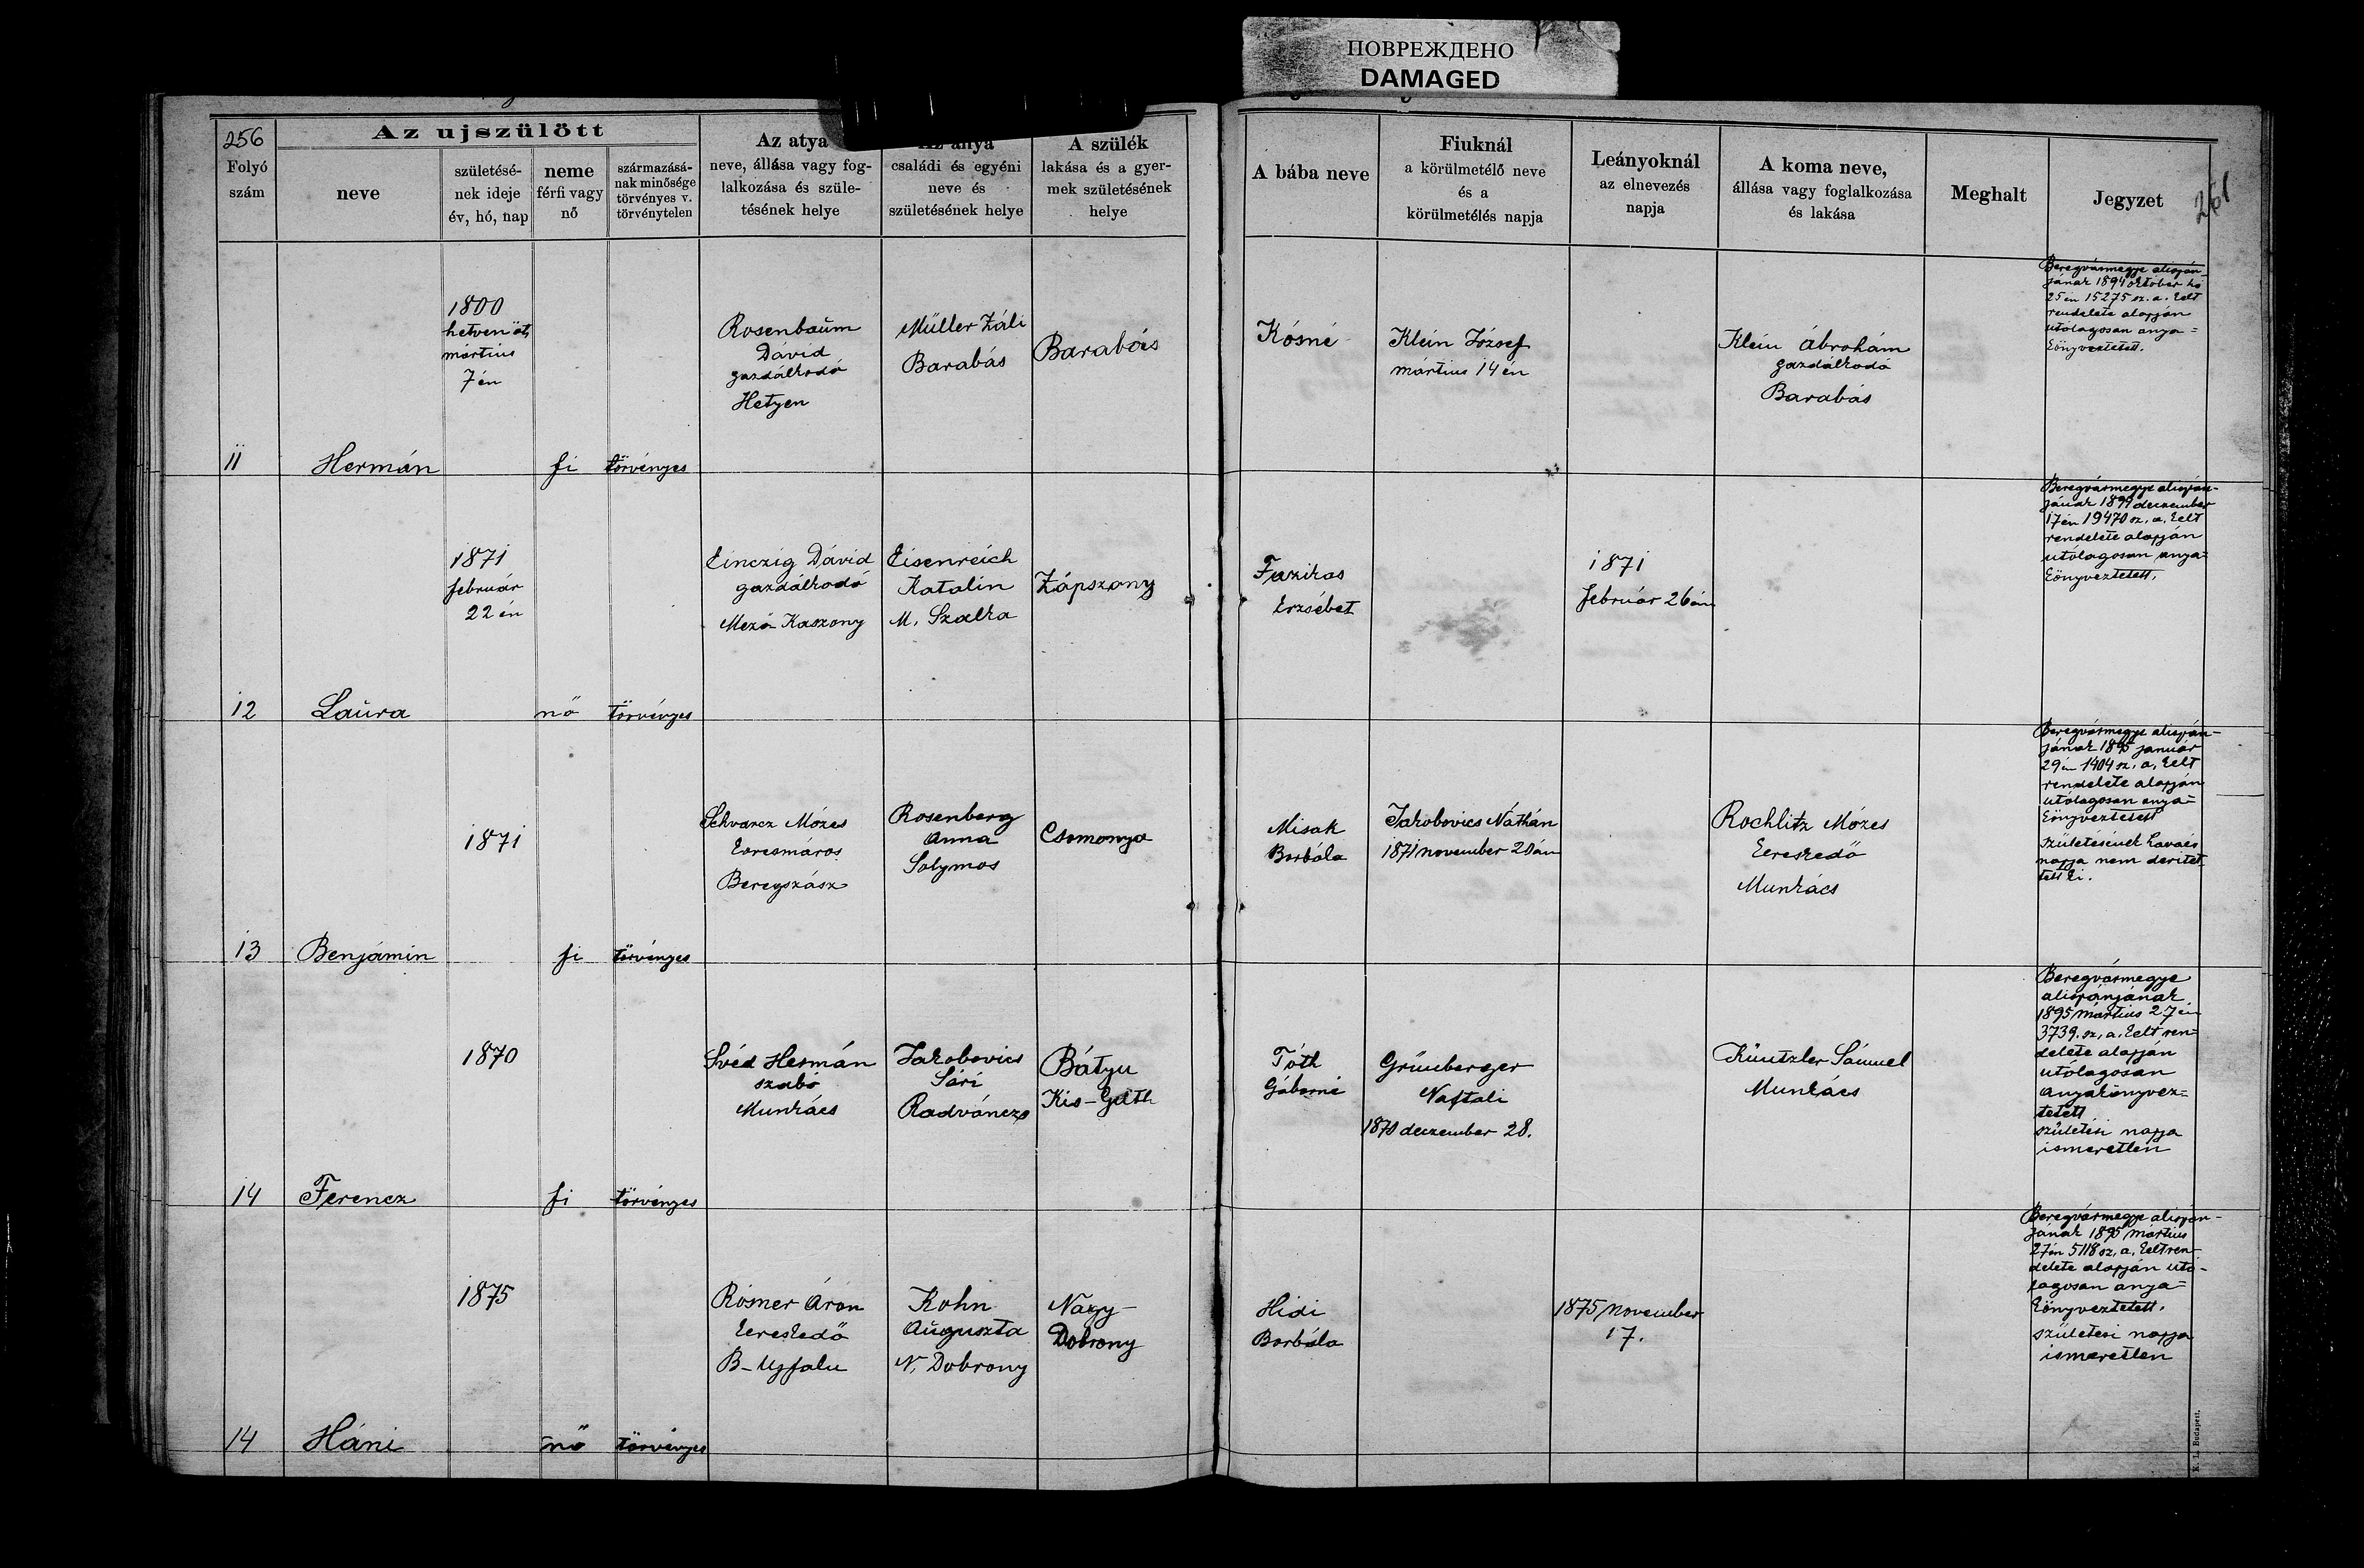 ПОВРЕЖДЕНО
DAMAGED
256
261
Az ujszülött
Folyó
szám
neve
születésé-
nek ideje
év, hó, nap
neme
férfi vagy
nő
származásá-
nak minősége
törvényes v.
törvénytelen
Az atya
neve, állása vagy fog-
lalkozása és szüle-
tésének helye
Az anya
családi és egyéni
neve és
születésének helye
A szülék
lakása és a gyer-
mek születésének
helye
A bába neve
Fiuknál
a körülmetélő neve
és a
körülmetélés napja
Leányoknál
az elnevezés
napja
A koma neve,
állása vagy foglalkozása
és lakása
Meghalt
Jegyzet
11
Hermán
1800
hetven öt
mártius
7 én
fi
törvényes
Rosenbaum
Dávid
gazdálkodó
Hetyen
Müller Záli
Barabás
Barabás
Kósné
Klein József
mártius 14 én
Klein Ábrohám
gazdálkodó
Barabás
Beregvármegye alispán-
jának 1894 október hó
25 én 15275 sz. a. kelt
rendelete alapján
utólagosan anya=
könyveztetett.
12
Laura
1871
február
22 én
nő
törvényes
Einczig Dávid
gazdálkodó
Mező Kaszony
Eisenreich
Katalin
M. Szalka
Zápszony
Fazikas
Erzsébet
1871
február 26 án
Beregvármegye alispán-
jának 1894 deczember
17 én 19470 sz. a. kelt
rendelete alapján
utólagosan anya=
könyveztetett.
13
Benjámin
1871
fi
törvényes
Schvarcz Mózes
korcsmáros
Beregszász
Rosenberg
Anna
Solymos
Csomonya
Misak
Borbála
Jakobovics Náthán
1871 november 20 án
Rochlitz Mózes
kereskedő
Munkács
Beregvármegye alispán-
jának 1895 január
29 én 1404 sz. a. kelt
rendelete alapján
utólagosan anya=
könyveztetett
Születésének havaés
napja nem derítet
tett ki.
14
Ferencz
1870
fi
törvényes
Svéd Hermán
szabó
Munkács
Jakobovics
Sári
Radváncz
Bátyu
Kis-Guth
Tóth
Gáborné
Grünberger
Naftali
1870 deczember 28.
Küntzler Sámuel
Munkács
Beregvármegye
alispánjának
1895 mártius 27 én
3739. sz. a. kelt ren=
delete alapján
utólagosan
anyakönyvez=
tetett
születési napja
ismeretlen
14
Háni
1875
nő
törvényes
Rósner Áron
kereskedő
B-Ujfalu
Kohn
Auguszta
N. Dobrony
Nagy-
Dobrony
Hidi
Borbála
1875 november
17.
Beregvármegye alispán-
jának 1895 mártius
27 én 5118 sz. a. kelt ren-
delete alapján utó-
lagosan anya=
könyveztetett.
születési napja
ismeretlen
K. L. Budapest.